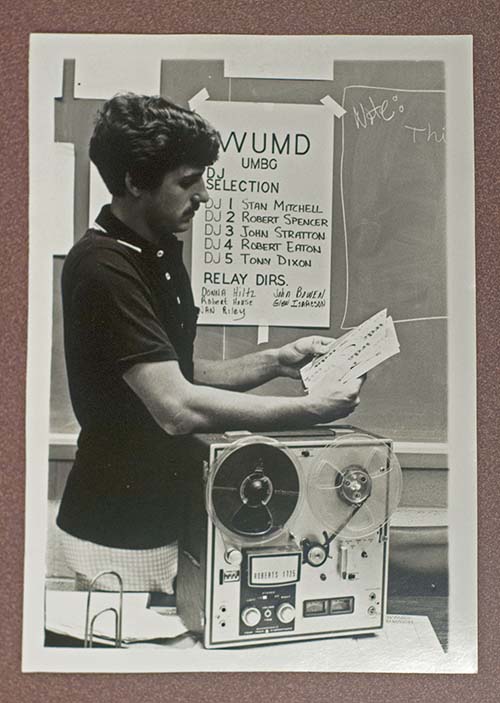 WUMD
UMBG
DJ
SELECTION
DJ 1 STAN MITCHELL
DJ 2 ROBERT SPENCER
DJ 3 JOHN STRATTON
DJ 4 ROBERT EATON
DJ 5 TONY DIXON
RELAY DIRS.
DONNA Hiltz John BOWEN
Robert House GLEN ISAACSON
JAN Riley
Note:
Thi
ROBERTS 1725